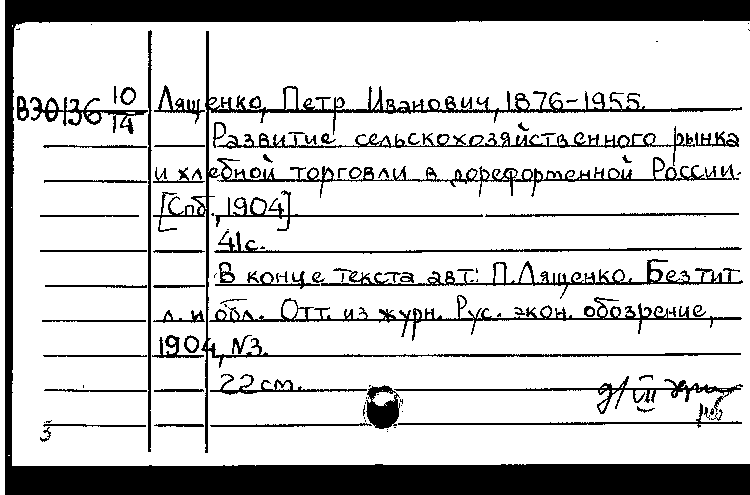 ВЭ0136 10/14 Лященко, Петр Иванович, 1876-1955.
Развитие сельскохозяйственного рынка
и хлебной торговли в дореформенной России.
[Спб., 1904].
41с.
В конце текста авт.: П.Лященко. Без тит.
л. и обл. Отт. из журн. Рус. экон. обозрение,
1904, №3.
22см.
3